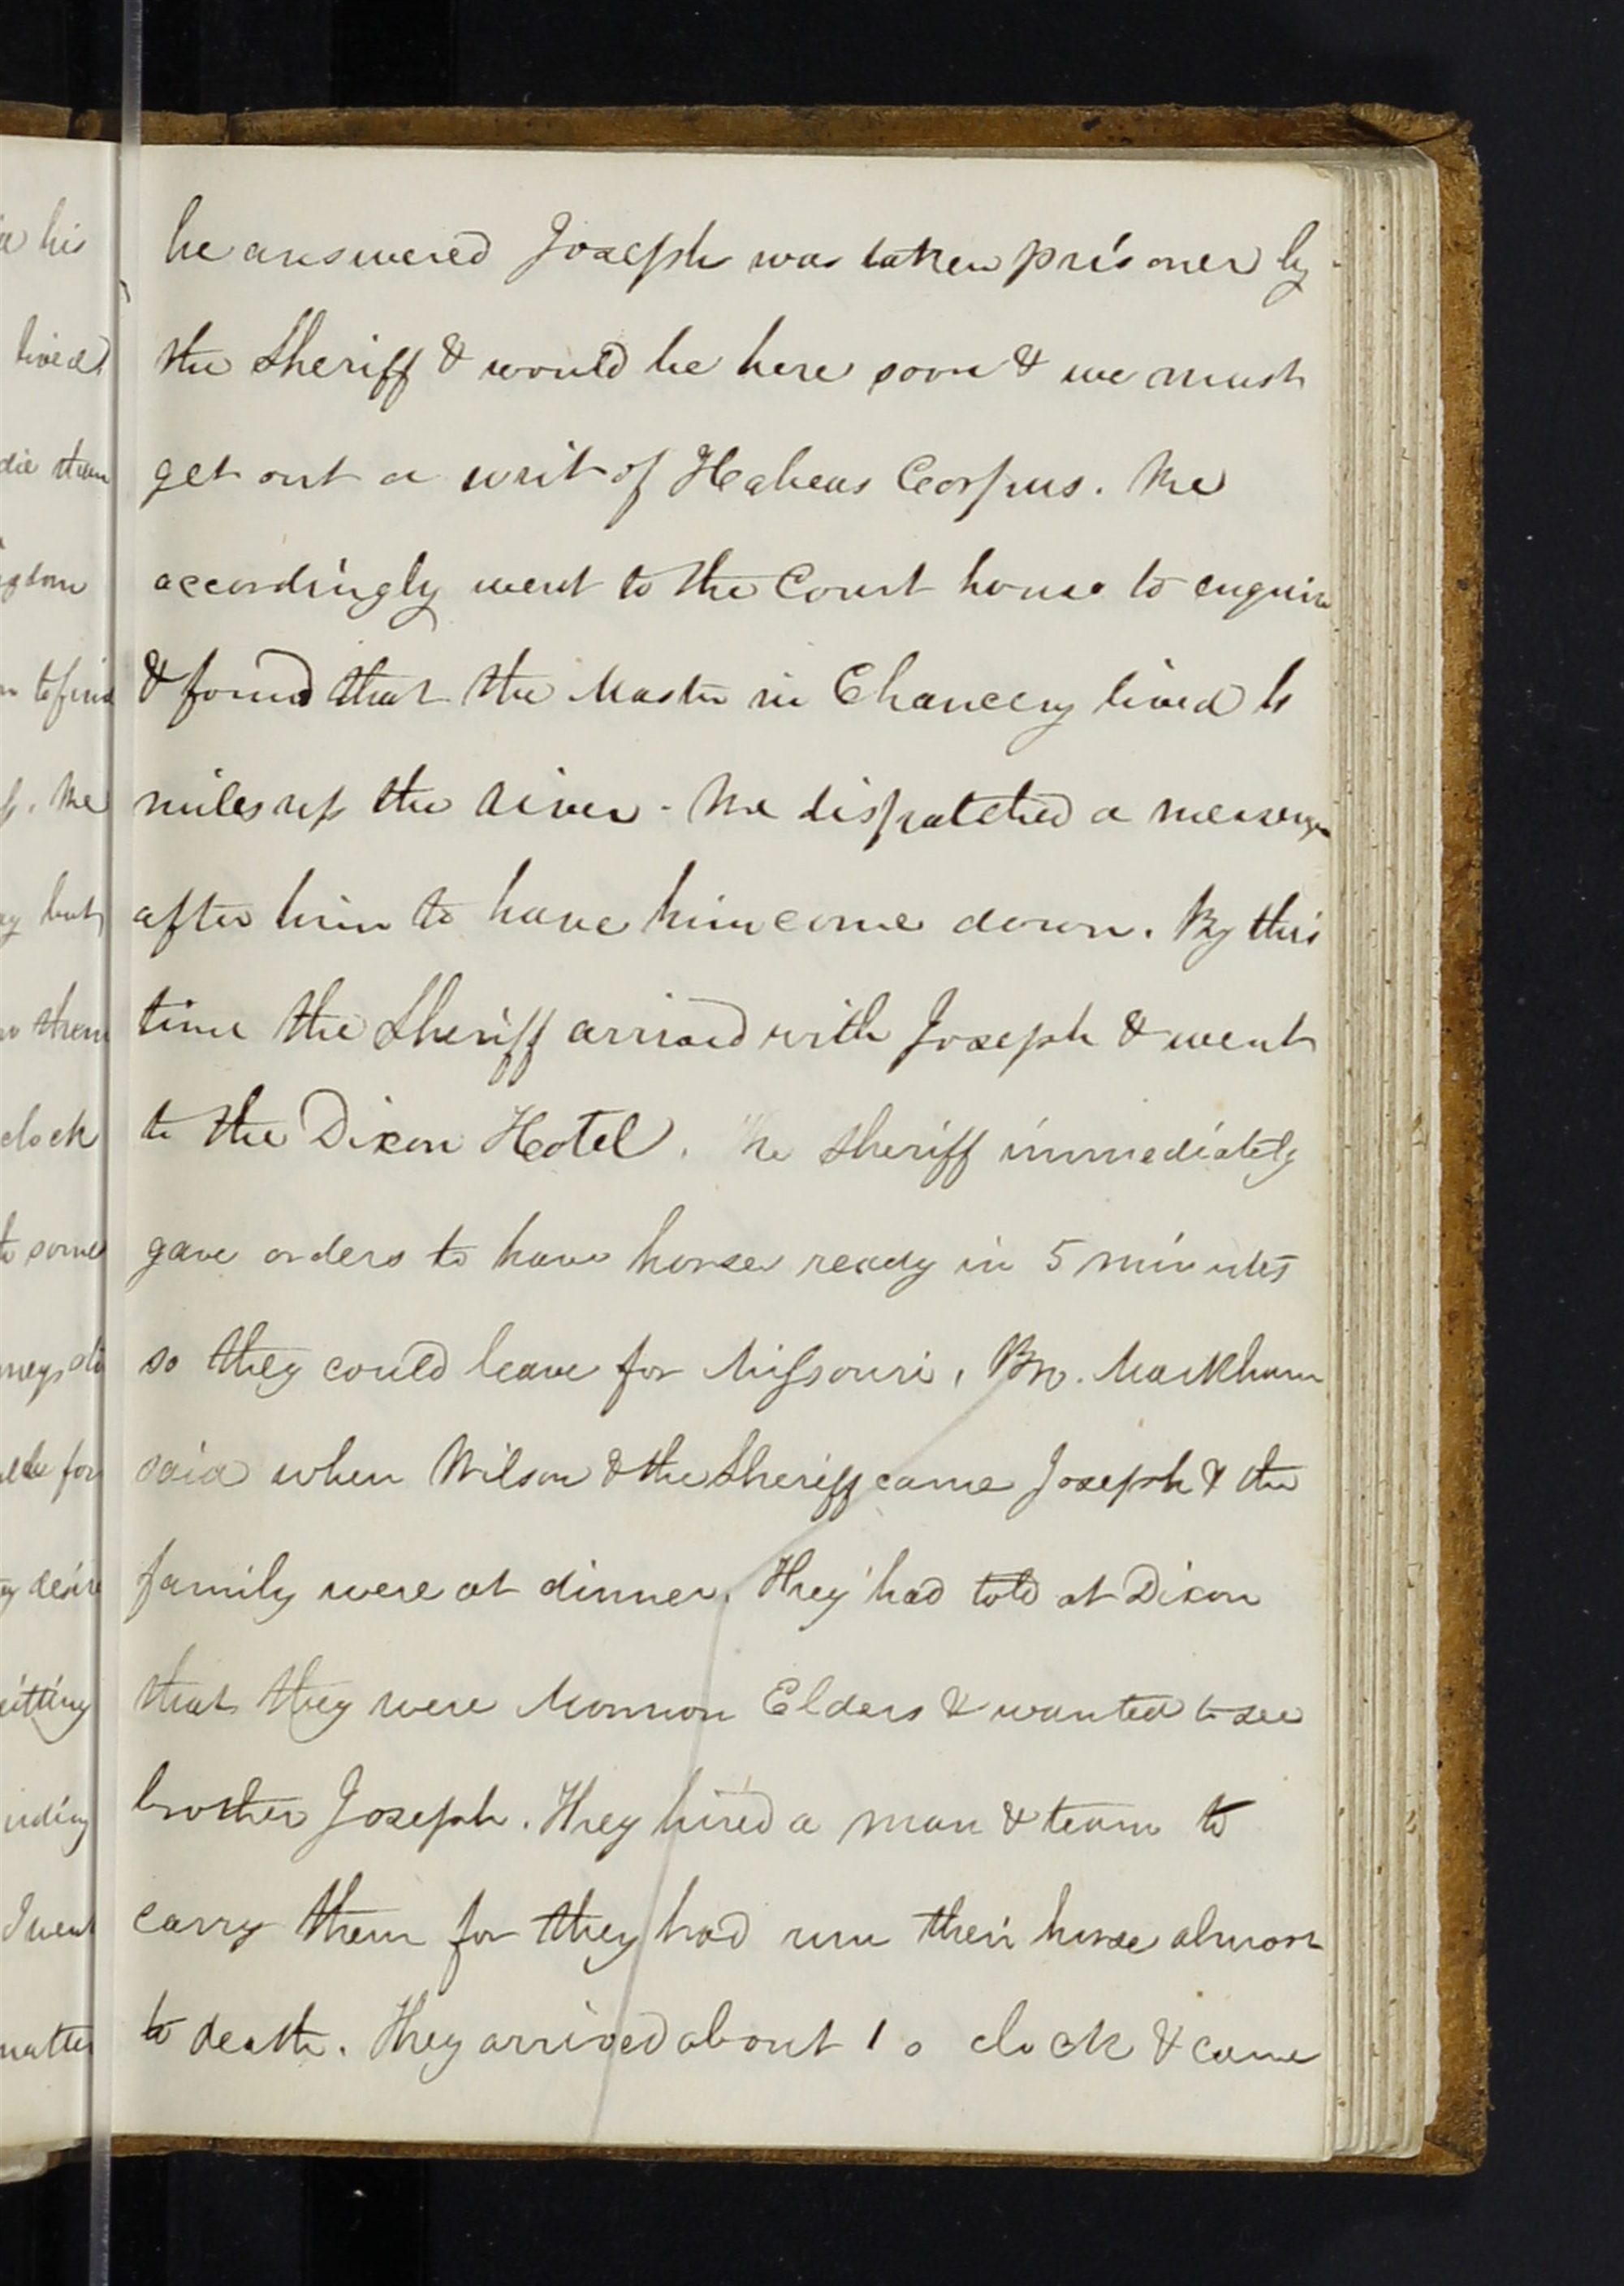 he answered Joseph was taken prisoner by
the Sheriff & would be here soon & we must
get out a writ of Habeas Corpus. We
accordingly went to the Court house to enquire
& found that the Master in Chancery lived 6
miles up the river - We dispatched a messenger
after him to have him come down. By this
time the Sheriff arrived with Joseph & went
to the Dixon Hotel. The sheriff immediately
gave orders to have horses ready in 5 minutes
so they could leave for Missouri, Bro. Markham
said when Wilson & the Sheriff came Joseph & the
family were at dinner. They had told at Dixon
that they were Mormon Elders & wanted to see
brother Joseph. They hired a man & team to
carry them for they had run their horse almost
to death. They arrived about 1 o clock & came
his
lived
die them
to find
We
but
them
clock
some
for
desire
I went
matter